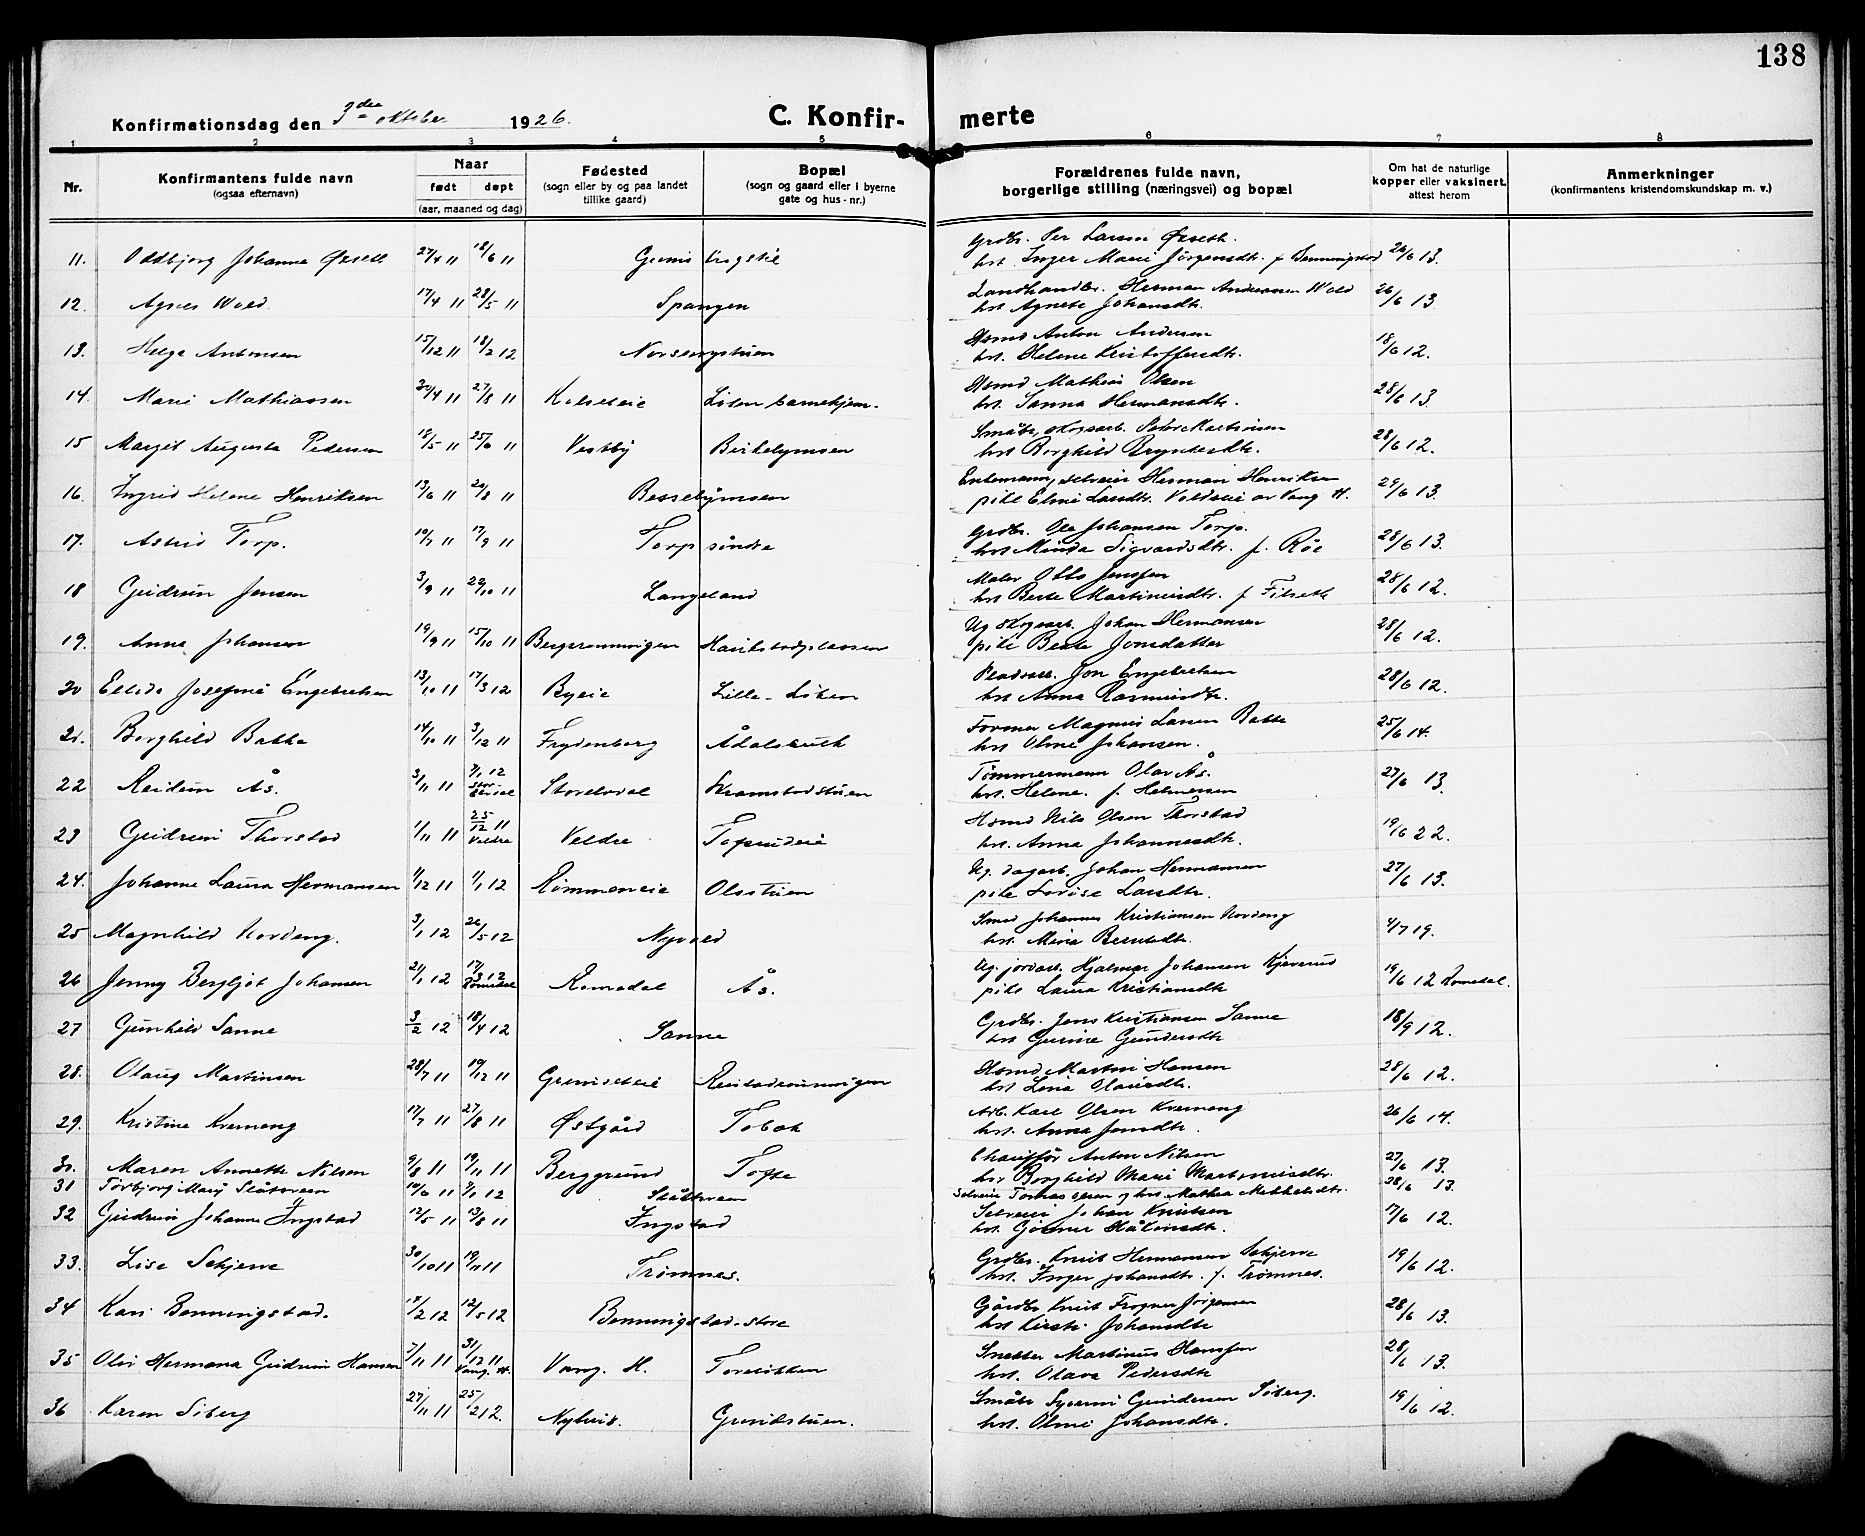 138
Konfirmationsdag den 3die oktober 1926.
C. Konfir- merte
1 2 3 4 5 6 7 8
Nr.
Konfirmantens fulde navn
(ogsaa efternavn)
Naar
født døpt
(aar, maaned og dag)
Fødested
(sogn eller by og paa landet
tillike gaard)
Bopæl
(sogn og gaard eller i byerne
gate og hus-nr.)
Forældrenes fulde navn,
borgerlige stilling (næringsvei) og bopæl
Om hat de naturlige
kopper eller vaksinert,
attest herom
Anmerkninger
(konfirmantens kristendomskundskap m. v.)
Grdbr. Per Larsen Økseth.
11. Oddbjørg Johanna Økseth 27/4 11 18/6 11 hst. Inger Marie Jørgensdtr. f. Benningstad 26/6 13.
Landhandler. Herman Andersen Wold
12. Agnes Wold. 17/4 11 28/5 11 Spangen hst Agnete Johansdtr. 26/6 13.
Hsmd Anton Andersen
13. Helga Antonsen 15/12 11 18/2 12 hst. Helene Kristoffersdtr. 18/6 12.
Hsmd Mathias Olsen
14. Marie Mathiassen 30/4 11 27/8 11 Kolseteie Løten barnehjem. hst. Sanna Hermansdtr. 28/6 13.
Småbr., skogsarb. Peter Martinsen
15 Margit Augusta Pedersen 18/5 11 25/6 11 Vestby Birkelymoen hst Borghild Bryntesdtr. 28/6 12.
Enkemann, selveier Herman Henriksen
16. Ingrid Helene Henriksen 13/6 11 20/8 11 Bessebymoen pike Elmi Larsdtr. Voldseie av Vang H. 29/6 13.
Grdbr. Ole Johansen Torp.
17. Astrid Torp. 10/7 11 17/9 11 Torp søndre hst Minda Sigvardsdtr. f. Röe 28/6 13.
Maler Otto Jenssen
18 Gudrun Jensen 3/9 11 22/10 11 Langeland hst Berte Martinusdtr. f Filseth 28/6 12.
Ug skogsarb. Johan Hermansen
19. Anna Johansen 19/9 11 15/10 11 Bergsrønningen Haukstadplassen pike Berte Jonsdatter 28/6 12.
Pladsarb. Jon Engebretsen
20 Ellida Josefine Engebretsen 13/10 11 17/3 12 Byeie Lille-Løten hst Anna Rasmusdtr. 28/6 12.
Former Magnus Larsen Bakke
21. Borghild Bakke 14/10 11 3/12 11 Frydenborg Ådalsbruk hst Oline Johansen. 25/6 14.
Tømmermann Olav Ås.
22 Reidun Ås. 3/11 11 7/1 12 Storelvdal Kramstadstuen hst. Helene f. Halvorsen 27/6 13.
Hsmd Nils Olsen Thorstad
23 Gudrun Thorstad 1/11 11 25/12 11 Veldre Veldre Tofsrudeie hst. Anna Johannesdtr 19/6 22.
Ug. dagarb. Johan Hermansen
24. Johanne Laura Hermansen 1/12 11 1/1 12 Rømmeneie Olsstuen pike Lovise Larsdtr. 27/6 13.
Smed Johannes Kristiansen Nordeng
25 Magnhild Nordeng. 3/1 12 26/5 12 Nyvold hst. Mina Berntsdtr. 4/7 19.
Ug. jordarb. Hjalmar Johansen Kjæverud
26 Jenny Bergljot Johansen 21/1 12 17/3 12 Romedal Romedal Ås. pike Laura Kristiansdtr 19/6 12 Romedal.
Grdbr. Jens Kristiansen Sanne
27 Gunhild Sanne 3/2 12 18/4 12 Sanne hst Gurine Gundersdtr 18/9 12.
Hsmd Martin Hansen
28. Olaug Martinsen 28/7 11 19/12 11 Grundseteie hst Lina Olausdtr. 28/6 12.
Arb. Karl Olsen Kverneng
29. Kristine Kverneng 17/7 11 27/8 11 Østgård hst. Anna Jonsdtr. 26/6 14.
Chauffør Anton Nilsen
30. Maren Annette Nilsen 9/8 11 19/11 11 Berggrund Tofte hst Borghild Marie Martiniusdtr. 27/6 13.
31 Torbjørg Marg Slåttveen 10/6 11 7/1 12 Slåttveen Selveier Tomas Olsen og hst. Mathea Mikkelsdtr. 28/6 13.
Selveier Johan Knutsen
32 Gudrun Johanne Ingstad 12/5 11 13/8 11 Ingstad hst. Gjøner Håkensdtr. 7/6 12.
Grdbr. Knut Hermansen Sekjerve
33. Lise Sekjerve 30/10 11 19/11 11 Trømnes. hst. Inger Johansdtr. f. Trømnes. 19/6 12.
Gårdbr Knut Frogner Jørgensen
34 Kari Benningstad. 14/2 12 12/5 12 Benningstad store hst Kirsti Johansdtr 28/6 13.
Snekker Martinus Hanssen
35 Olivi Hermana Gudrun Hansen 7/11 11 31/12 11 Vang. H. Vang. H. Toreløkken hst. Olava Pedersdtr 28/6 13.
Småbr Syverin Gundersen Siberg.
36 Karen Siberg 27/11 11 25/2 12. Nyhus. Grundstuen. hst. Oline Johansdtr. 19/6 12.